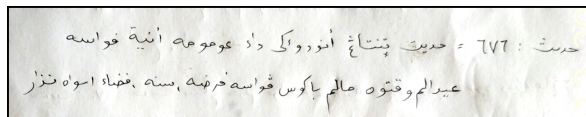 حديث : ٦٧٦ = حديث تنتاڠ أنودوءکى داء عمومه أنية ڤواسه
عيدالم وقتوه مالم باكوس ڤواسه فرضه، سنه، قضاء اتواه نذار